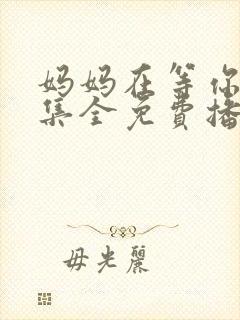 妈妈在等你
集全免費播
毋光麗